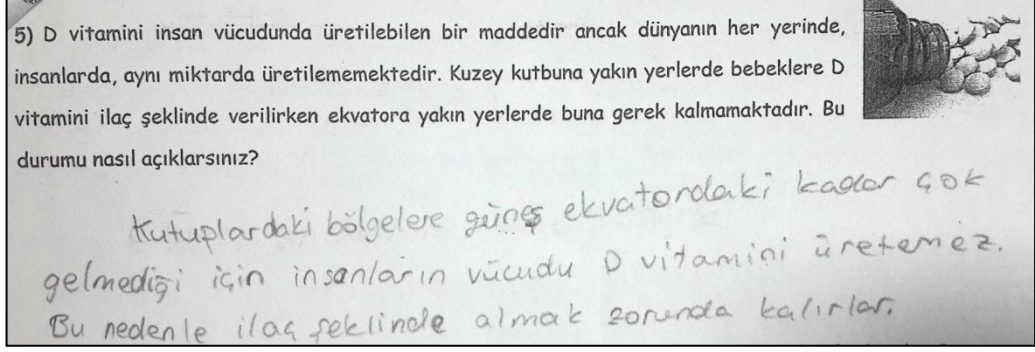 5) D vitamini insan vücudunda üretilebilen bir maddedir ancak dünyanın her yerinde,
insanlarda, aynı miktarda üretilememektedir. Kuzey kutbuna yakın yerlerde bebeklere D
vitamini ilaç şeklinde verilirken ekvatora yakın yerlerde buna gerek kalmamaktadır. Bu
durumu nasıl açıklarsınız?
Kutuplardaki bölgelere güneş ekvatordaki kadar çok
gelmediği için insanların vücudu D vitamini üretemez.
Bu nedenle ilaç şeklinde almak zorunda kalırlar.